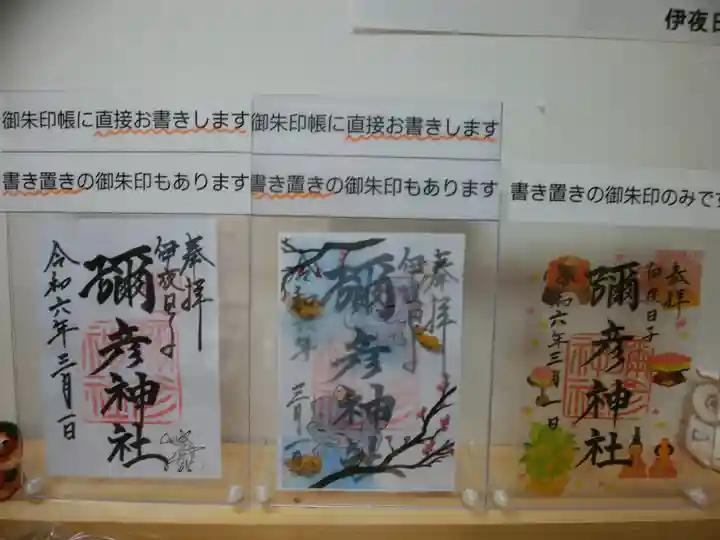 伊夜日
御朱印帳に直接お書きします
書き置きの御朱印もあります
御朱印帳に直接お書きします
書き置きの御朱印もあります
書き置きの御朱印のみです
奉拝
伊夜日子
彌彦神社
令和六年三月一日
奉拝
伊夜日子
彌彦神社
令和六年三月一日
奉拝
伊夜日子
彌彦神社
令和六年三月一日